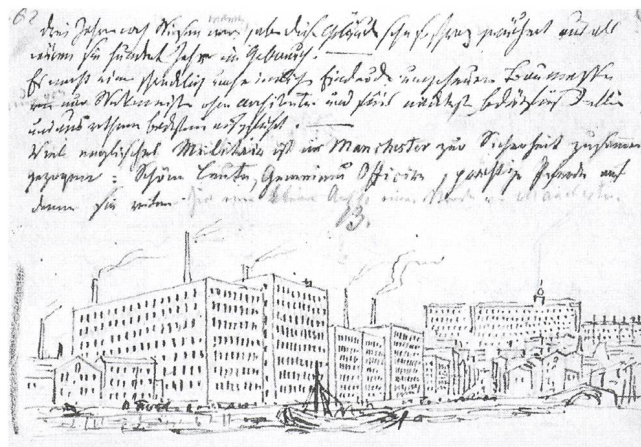 62
drei Jahren noch Wiesen waren, aber diese Gebäude sehn so schwarz geräuchert aus als
wären sie hundert Jahre im Gebrauch. —
Es macht einen schrecklich unheimlichen Eindruck ungeheure Baumassen
von nur Werkmeistern ohne Architectur und fürs nackteste Bedürfniß allein
und aus rothem Backstein ausgeführt. —
Viel englisches Militair ist in Manchester zur Sicherheit zusammen
gezogen: Schöne Leute, Gemeine u Officire, prächtige Pferde auf
denen sie reiten